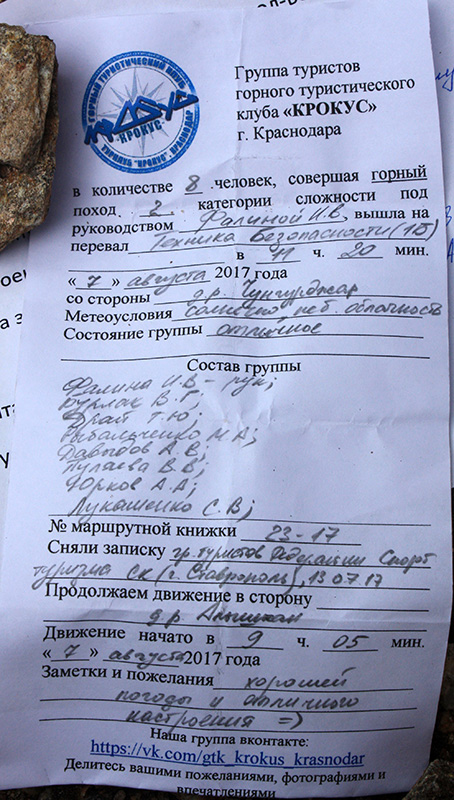 ГОРНЫЙ ТУРИСТИЧЕСКИЙ КЛУБ
КРОКУС
ТУРКЛУБ "КРОКУС" КРАСНОДАР
Группа туристов
горного туристического
клуба «КРОКУС»
г. Краснодара
в количестве 8 человек, совершая горный
поход 2 категории сложности под
руководством Фалиной И.В, вышла на
перевал Техника Безопасности (1Б)
в 11 ч. 20 мин.
« 7 » августа 2017 года
со стороны д.р. Чунгурджар
Метеоусловия солнечно, неб. облачность
Состояние группы отличное
Состав группы
Фалина И.В - рук;
Бурлак В.Г;
Драй Т.Ю;
Рыбальченко Н.А;
Давыдов А.В;
Пулаева В.В;
Юрков А.А;
Лукашенко С.В;
№ маршрутной книжки 23-17
Сняли записку гр. туристов Федерации Спорт
туризма СК (г. Ставрополь), 13.07.17
Продолжаем движение в сторону
д.р.
Движение начато в 9 ч. 05 мин.
« 7 » августа 2017 года
Заметки и пожелания хорошей
погоды и отличного
настроения =)
Наша группа вконтакте:
https://vk.com/gtk_krokus_krasnodar
Делитесь вашими пожеланиями, фотографиями и
впечатлениями